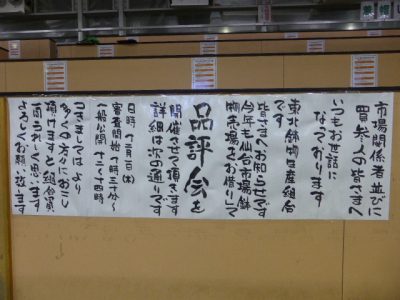 市場関係者並びに
買参人の皆さまへ
いつもお世話に
なっております
東北鉢物生産組合
です
皆さまへお知らせです
今年も仙台市場鉢
物売場をお借りして
品評会を
開催させて頂きます
詳細は次の通りです
日時 十二月一日(木)
審査開始 八時三十分~
一般公開 十一~十四時
つきましてはより
多くの方々にお こし
頂けますと組合員一
同うれしく思います
よろしくお願い致します